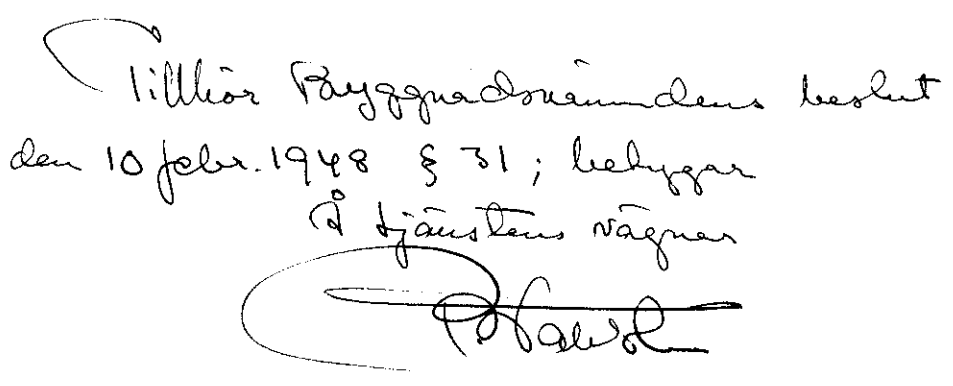 Tillhör Byggnadsnämndens beslut
den 10 febr. 1948 § 31; betygar
Å tjänstens vägnar